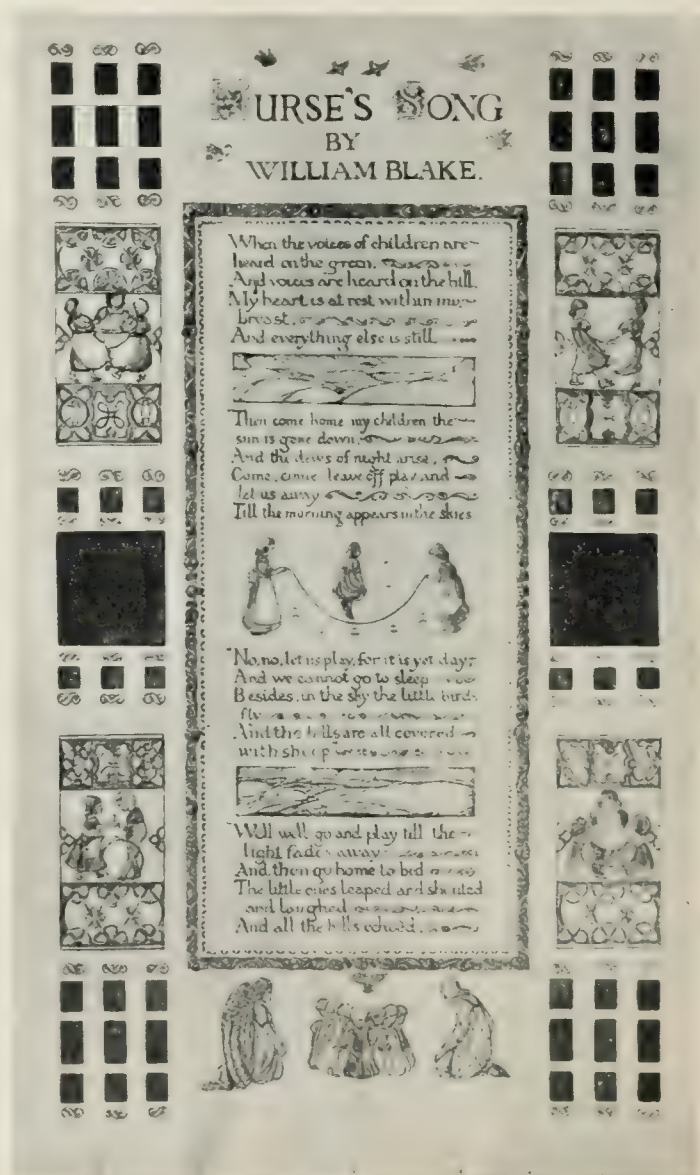 NURSE'S SONG
BY
WILLIAM BLAKE.
When the voices of children are
heard on the green,
And voices are heard on the hill,
My heart is at rest within my
breast,
And everything else is still
Then come home my children the
sun is gone down,
And the dews of night arise,
Come, come leave off play and
let us away
Till the morning appears in the skies
"No, no, let us play, for it is yet day,
And we cannot go to sleep
Besides, in the sky the little birds
fly
And the hills are all covered
with sheep
"Well well go and play till the
light fades away
And then go home to bed
The little ones leaped and shouted
and laughed
And all the hills echoed.